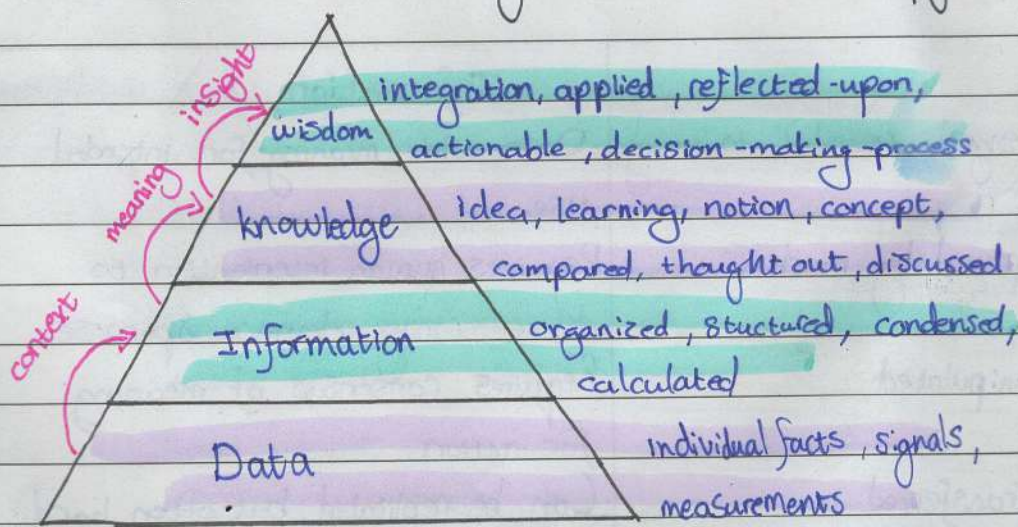 insight
integration, applied, reflected-upon,
wisdom
actionable, decision-making-process
meaning
knowledge
idea, learning, notion, concept,
compared, thought out, discussed
context
Information
organized, stuctured, condensed,
calculated
Data
individual facts, signals,
measurements